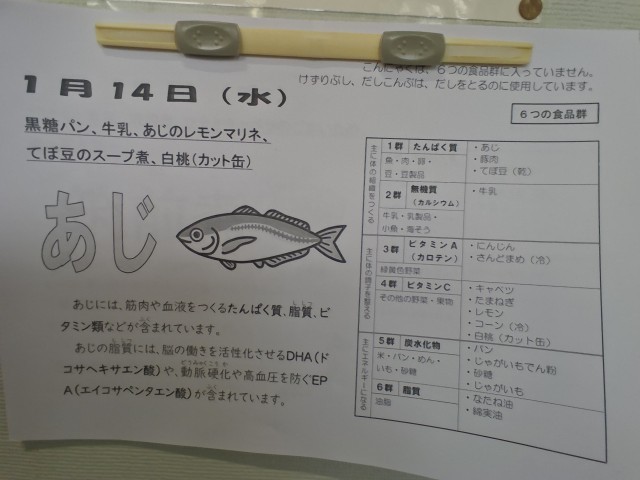 こんにゃくは、６つの食品群に入っていません。
けずりぶし、だしこんぶは、だしをとるのに使用しています。
１月14日（水）
６つの食品群
黒糖パン、牛乳、あじのレモンマリネ、
てぼ豆のスープ煮、白桃（カット缶）
あじ
あじには、筋肉や血液をつくるたんぱく質、脂質、ビ
タミン類などが含まれています。
あじの脂質には、脳の働きを活性化させるDHA（ド
コサヘキサエン酸）や、動脈硬化や高血圧を防ぐEP
A（エイコサペンタエン酸）が含まれています。
主に体の組織をつくる
１群 たんぱく質
魚・肉・卵・
豆・豆製品
・あじ
・豚肉
・てぼ豆（乾）
２群 無機質
（カルシウム）
牛乳・乳製品・
小魚・海そう
・牛乳
主に体の調子を整える
３群 ビタミンA
（カロテン）
緑黄色野菜
・にんじん
・さんどまめ（冷）
４群 ビタミンC
その他の野菜・果物
・キャベツ
・たまねぎ
・レモン
・コーン（冷）
・白桃（カット缶）
主にエネルギーになる
５群 炭水化物
米・パン・めん・
いも・砂糖
・パン
・じゃがいもでん粉
・砂糖
・じゃがいも
６群 脂質
油脂
・なたね油
・綿実油